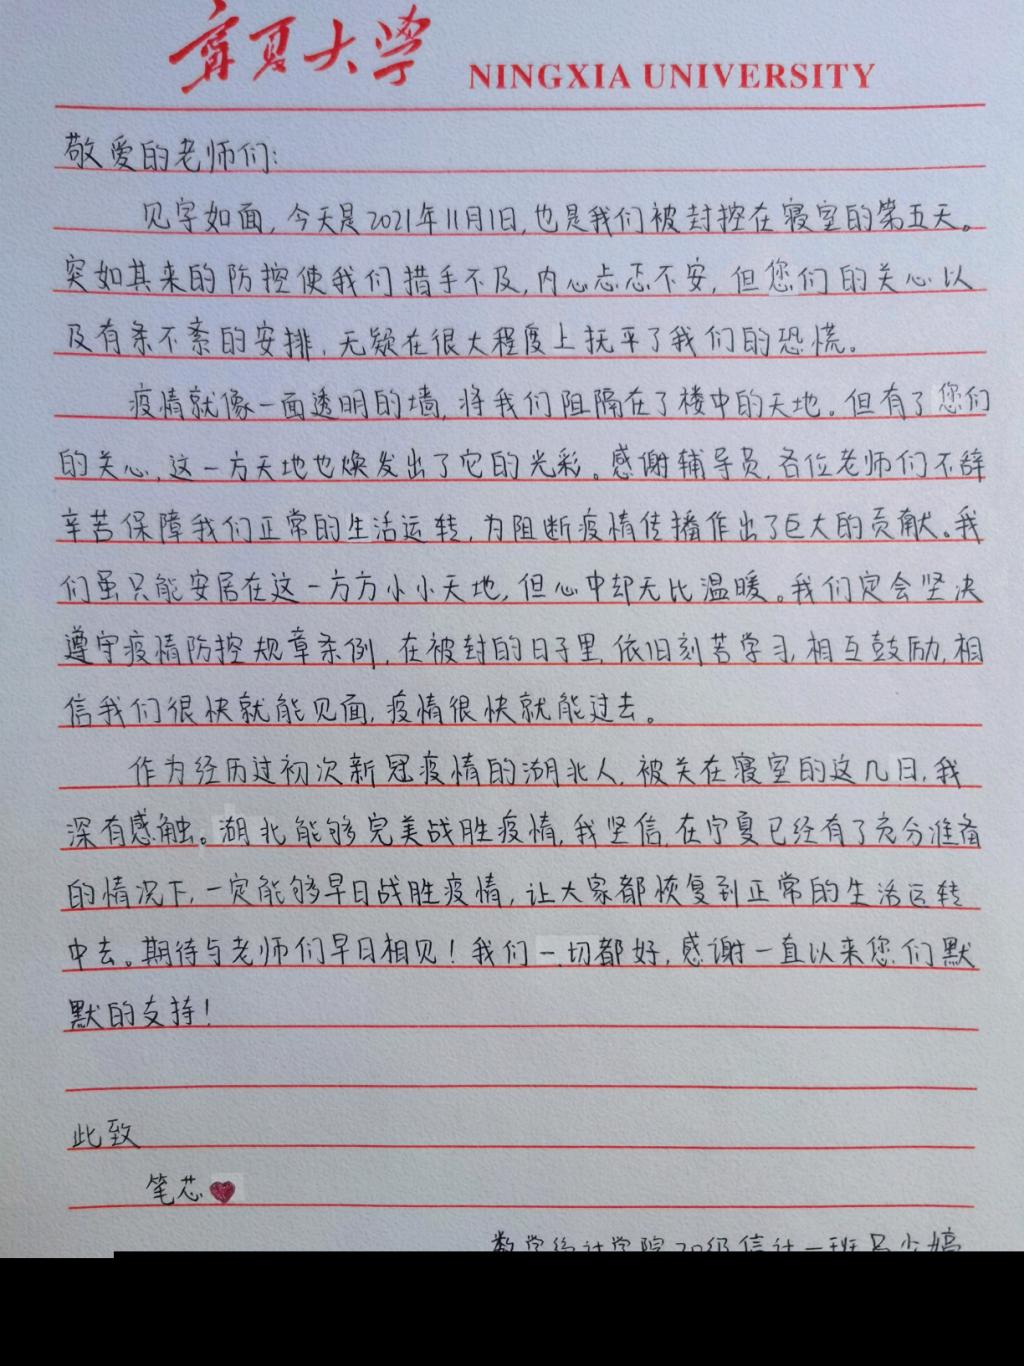 宁夏大学 NINGXIA UNIVERSITY
敬爱的老师们:
见字如面,今天是2021年11月1日,也是我们被封控在寝室的第五天。
突如其来的防控使我们措手不及,内心忐忑不安,但您们的关心以
及有条不紊的安排,无疑在很大程度上抚平了我们的恐慌。
疫情就像一面透明的墙,将我们阻隔在了楼中的天地。但有了您们
的关心,这一方天地也焕发出了它的光彩。感谢辅导员,各位老师们不辞
辛苦保障我们正常的生活运转,为阻断疫情传播作出了巨大的贡献。我
们虽只能安居在这一方方小小天地,但心中却无比温暖。我们定会坚决
遵守疫情防控规章条例,在被封的日子里,依旧刻苦学习,相互鼓励,相
信我们很快就能见面,疫情很快就能过去。
作为经历过初次新冠疫情的湖北人,被关在寝室的这几日,我
深有感触。湖北能够完美战胜疫情,我坚信,在宁夏已经有了充分准备
的情况下,一定能够早日战胜疫情,让大家都恢复到正常的生活运转
中去。期待与老师们早日相见!我们一切都好,感谢一直以来您们默
默的支持!
此致
笔芯
数学统计学院20级信计一班吕少婷